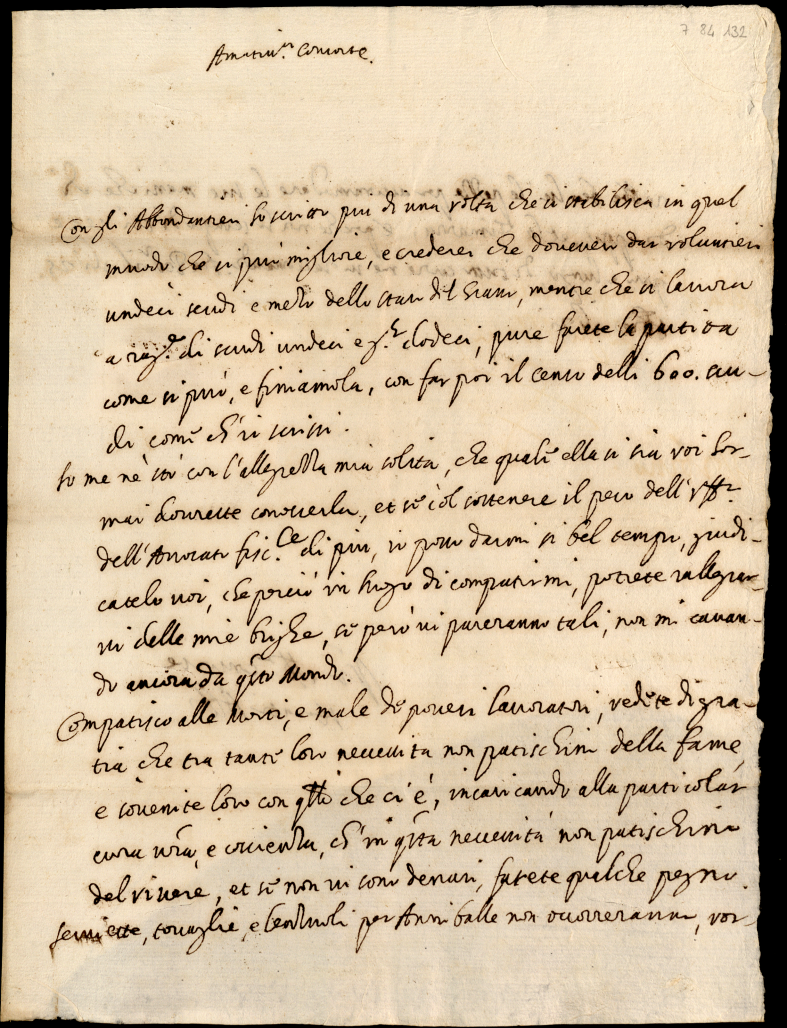 7 84 132
Amatiss.ᵃ Consorte.
Con gli Abbondantieri ho scritto piu di una volta che si stabilisca in quel
modo che si può migliore, e crederei che dovesseri dar volentieri
undeci scudi e mezo dello staro del grano, mentre che si lavora
a rag.ᵉ di scudi undeci e dodeci, pure farete la partita
come si può, e finiamola, con far poi il censo delli 600. scu-
di come ch'io scrissi.
Io me nè stò con l'allegrezza mia solita, che quale ella si sia voi hor-
mai dovreste conoscerla, et se col sostenere il peso dell'
dell'Avvocato fisc.ˡᵉ di più, io posso darmi si bel tempo, giudi-
catelo voi, che perciò in luogo di compatirmi, potrete rallegrar-
vi delle mie brighe, se però vi pareranno tali, non mi cavan-
do ancora da q.sto Mondo.
Compatisco alle Morti, e male de poveri lavoratori, vedete di gra-
tia che tra tante loro necessita non patischino della fame,
e sovenite loro con q.llo che ci è, incaricando alla particolar
cura v.ra, e coscienza, ch'in q.sta necessità non patischino
del vivere, et se non vi sono denari, farete qualche pegno.
Serviette, tovaglie, e lenzuoli per Annibale non occorreranno, vor-